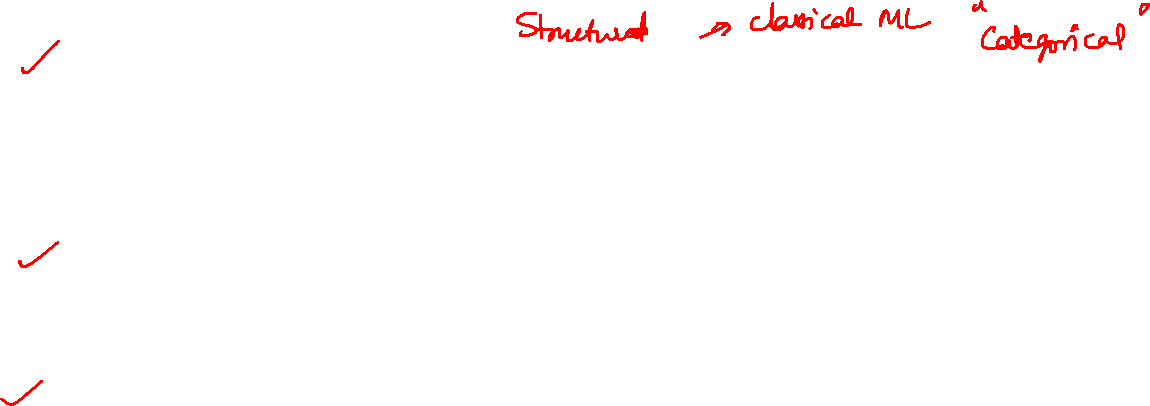 Structured → classical ML "Categorical"